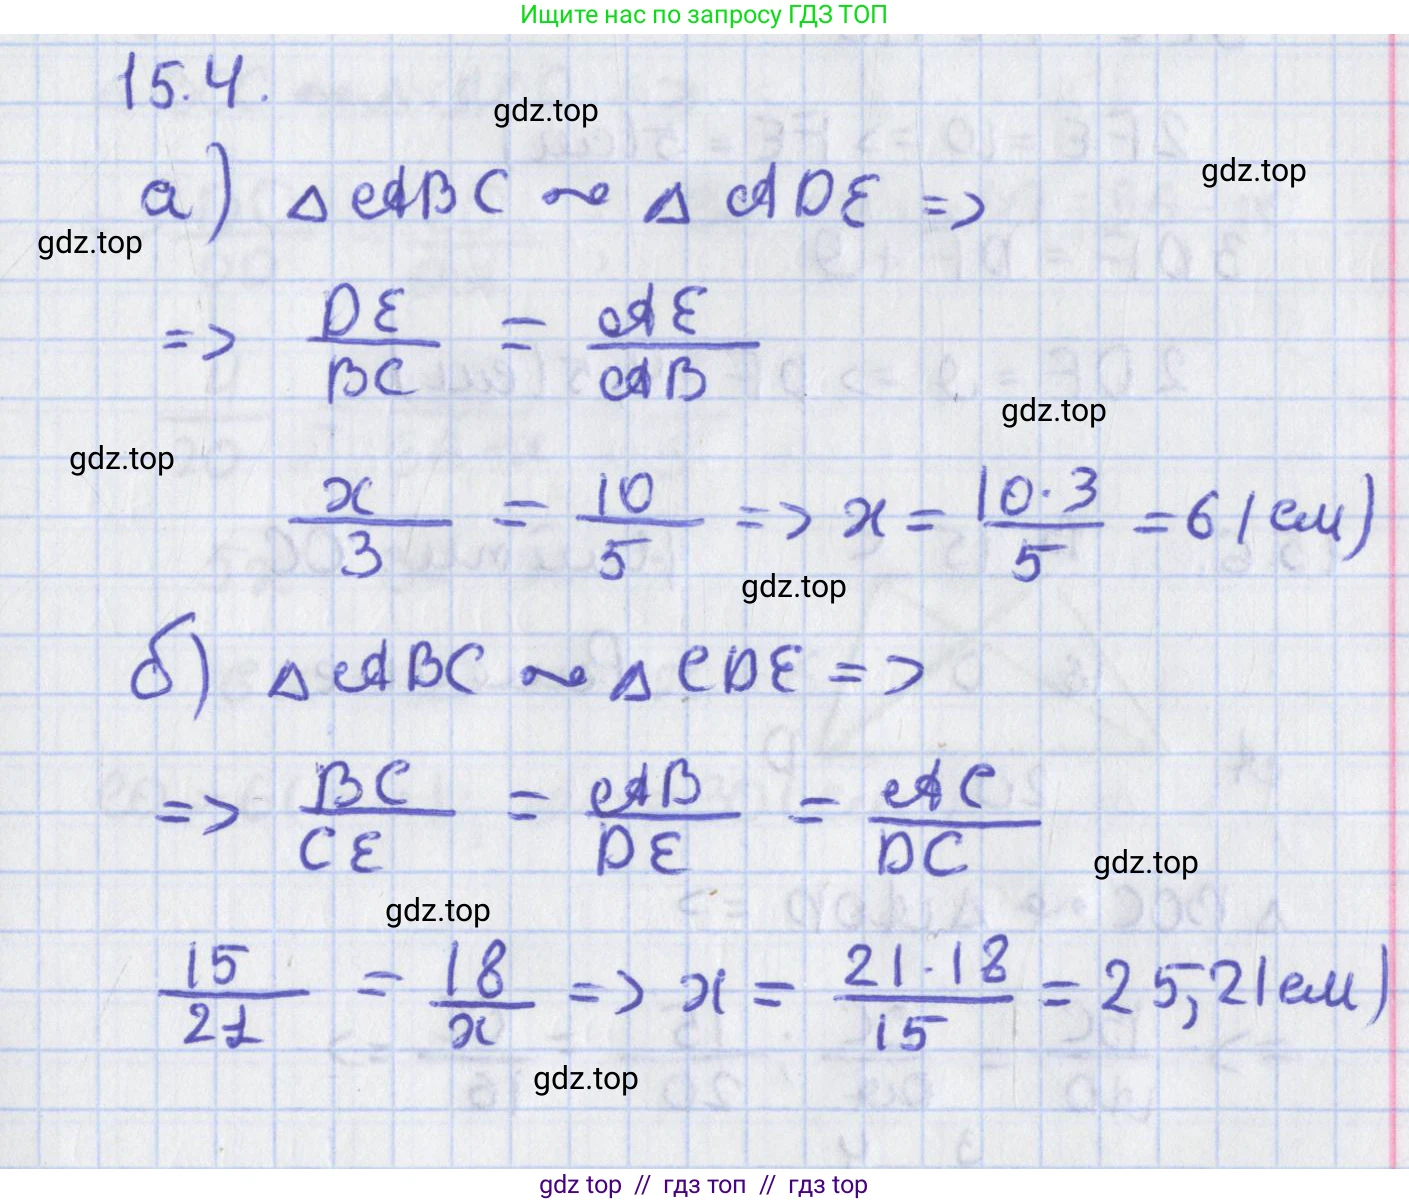 Ищите нас по запросу ГДЗ ТОП
15.4.
gdz.top
gdz.top
а) Δ ABC ~ Δ ADE =>
gdz.top
=> DE/BC = AE/AB
gdz.top
gdz.top
x/3 = 10/5 => x = 10·3/5 = 6 (см)
gdz.top
б) Δ ABC ~ Δ CDE =>
=> BC/CE = AB/DE = AC/DC
gdz.top
gdz.top
15/21 = 18/x => x = 21·18/15 = 25,2 (см)
gdz.top
gdz top // гдз топ // гдз top